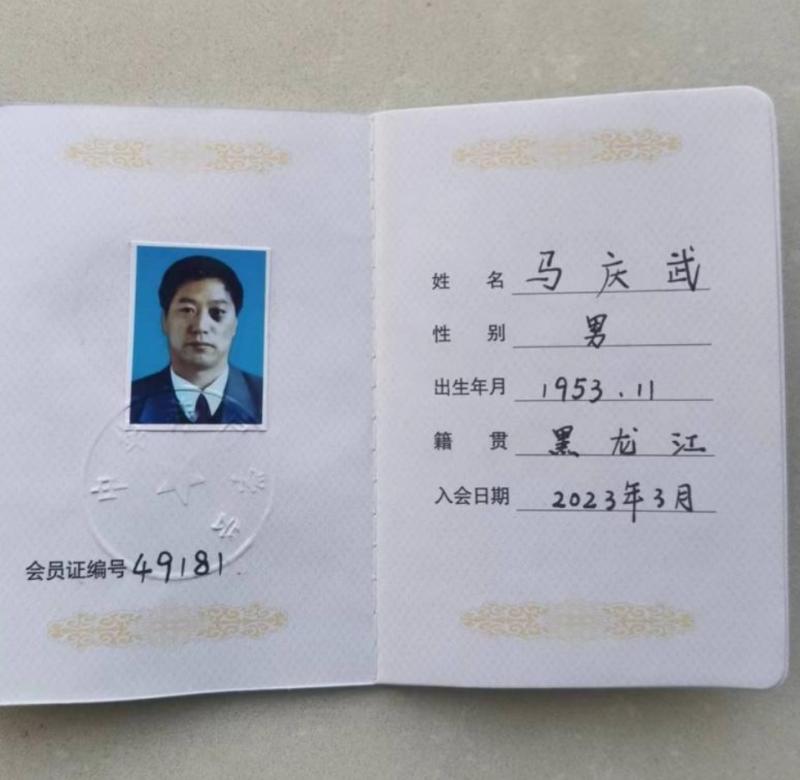 会员证编号 49181
姓 名 马庆武
性 别 男
出生年月 1953.11
籍 贯 黑龙江
入会日期 2023年3月